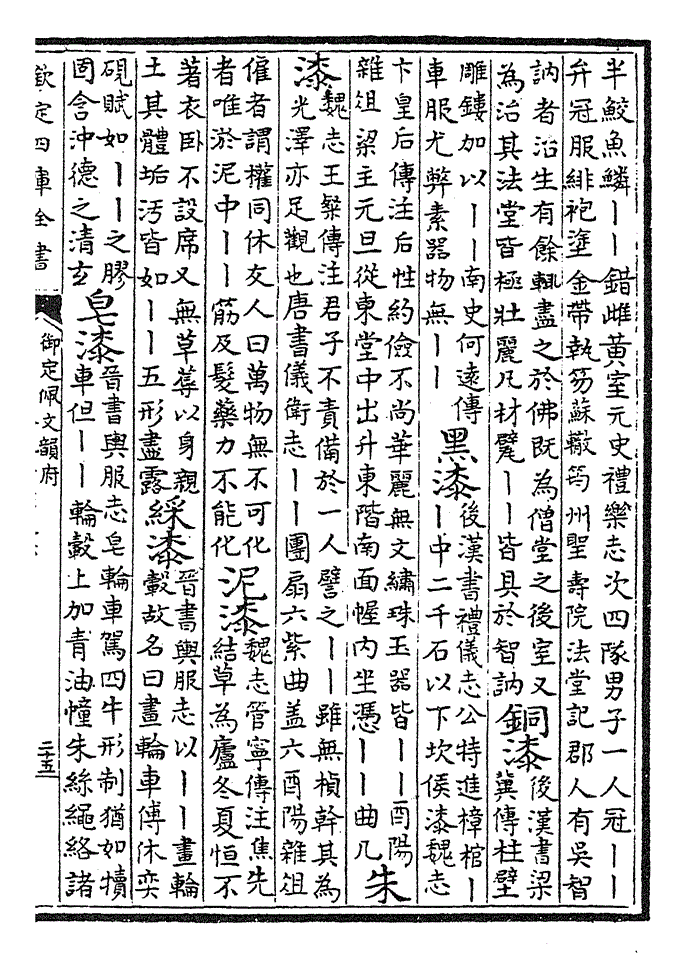 半鮫魚鱗丨丨錯雌黄室元史禮樂志次四隊男子一人冠丨丨
弁冠服緋袍塗金帶執笏蘇轍筠州聖壽院法堂記郡人有吳智
訥者治生有餘輒盡之於佛既為僧堂之後室又
為治其法堂皆極壯麗凡材甓丨丨皆具於智訥
銅漆
後漢書梁
冀傳柱壁
雕鏤加以丨丨南史何遠傳
車服尤弊素器物無丨丨
黑漆
後漢書禮儀志公特進樟棺丨
丨中二千石以下坎侯漆魏志
卞皇后傳注后性約儉不尚華麗無文繡珠玉器皆丨丨酉陽
雜俎梁主元旦從東堂中出升東階南面幄内坐憑丨丨曲几
朱
漆
魏志王粲傳注君子不責備於一人譬之丨丨雖無楨幹其為
光澤亦足觀也唐書儀衛志丨丨團扇六紫曲盖六酉陽雜俎
催者謂權同休友人曰萬物無不可化
者唯於泥中丨丨筋及髮藥力不能化
泥漆
魏志管寧傳注焦先
結草為廬冬夏恒不
著衣卧不設席又無草蓐以身親
土其體垢汚皆如丨丨五形盡露
綵漆
晉書輿服志以丨丨畫輪
轂故名曰畫輪車傅休奕
硯賦如丨丨之膠
固含沖德之清玄
皂漆
晉書輿服志皂輪車駕四牛形制猶如犢
車但丨丨輪轂上加青油幢朱絲繩絡諸
欽定四庫全書
御定佩文韻府
二十五